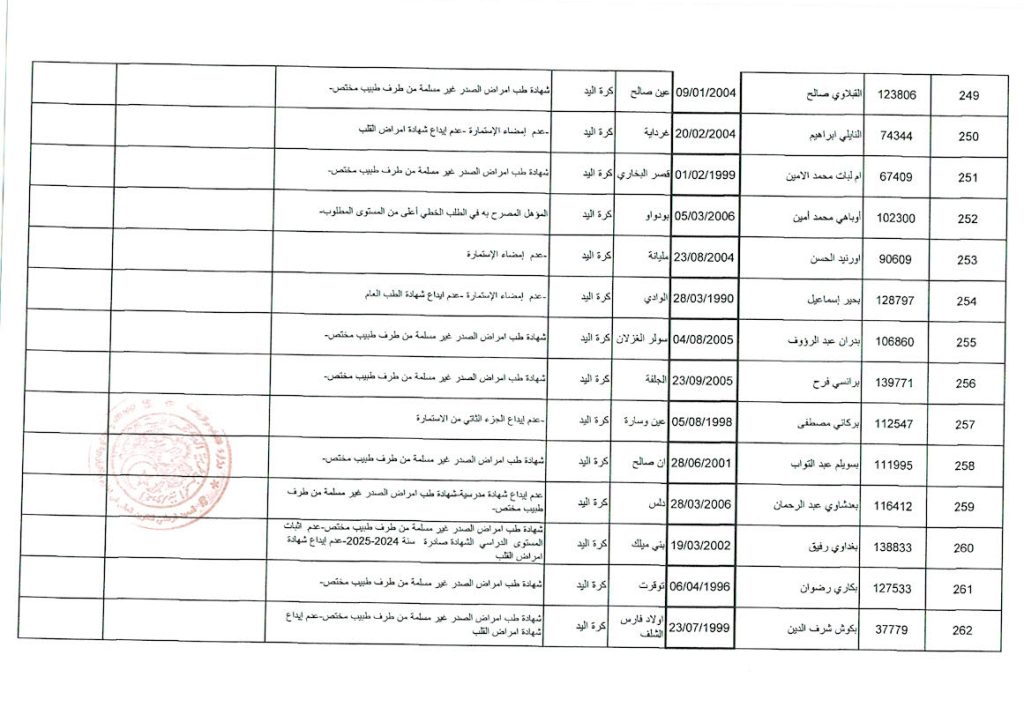 249 123806 القبلاوي صالح 09/01/2004 عين صالح كرة اليد شهادة طب امراض الصدر غير مسلمة من طرف طبيب مختص-
250 74344 النايلي ابراهيم 20/02/2004 غرداية كرة اليد -عدم إمضاء الإستمارة -عدم إيداع شهادة امراض القلب
251 67409 ام لبات محمد الامين 01/02/1999 قصر البخاري كرة اليد شهادة طب امراض الصدر غير مسلمة من طرف طبيب مختص-
252 102300 أوباهي محمد أمين 05/03/2006 بودواو كرة اليد المؤهل المصرح به في الطلب الخطي أعلى من المستوى المطلوب-
253 90609 اورنيد الحسن 23/08/2004 مليانة كرة اليد -عدم إمضاء الإستمارة
254 128797 بحير إسماعيل 28/03/1990 الوادي كرة اليد -عدم إمضاء الإستمارة -عدم ايداع شهادة الطب العام
255 106860 بدران عبد الرؤوف 04/08/2005 سولر الغزلان كرة اليد شهادة طب امراض الصدر غير مسلمة من طرف طبيب مختص-
256 139771 برانسي فرح 23/09/2005 الجلفة كرة اليد شهادة طب امراض الصدر غير مسلمة من طرف طبيب مختص-
257 112547 بركاني مصطفى 05/08/1998 عين وسارة كرة اليد -عدم إيداع الجزء الثاني من الاستمارة
258 111995 بسويلم عبد التواب 28/06/2001 ان صالح كرة اليد شهادة طب امراض الصدر غير مسلمة من طرف طبيب مختص-
259 116412 بعدشاوي عبد الرحمان 28/03/2006 دلس كرة اليد عدم إيداع شهادة مدرسية-شهادة طب امراض الصدر غير مسلمة من طرف
طبيب مختص-
260 138833 بغداوي رفيق 19/03/2002 بني ميلك كرة اليد شهادة طب امراض الصدر غير مسلمة من طرف طبيب مختص-عدم اثبات
المستوى الدراسي الشهادة صادرة سنة 2024-2025-عدم إيداع شهادة
امراض القلب
261 127533 بكاري رضوان 06/04/1996 توقرت كرة اليد شهادة طب امراض الصدر غير مسلمة من طرف طبيب مختص-
262 37779 بكوش شرف الدين 23/07/1999 اولاد فارس الشلف كرة اليد شهادة طب امراض الصدر غير مسلمة من طرف طبيب مختص-عدم إيداع
شهادة امراض القلب